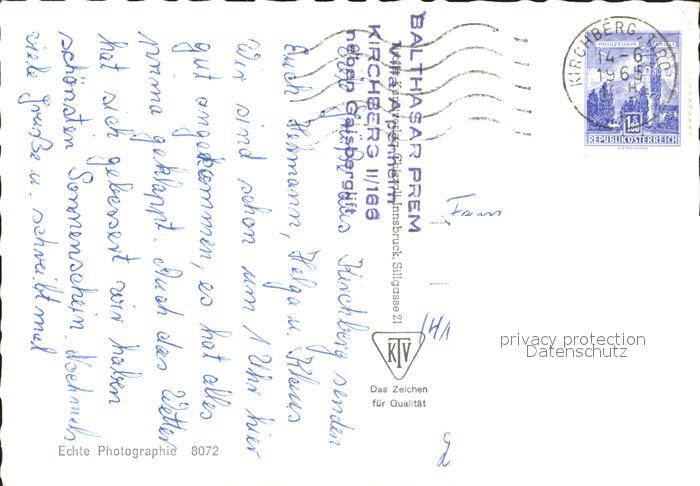 BALTHASAR PREM
KIRCHBERG II/166
neben Gaisberglift
Innsbruck, Sillgasse 21
Kirchberg senden
Euch Hermann, Helga u. Klaus
Wir sind schon um 1 Uhr hier
gut angekommen, es hat alles
prima geklappt. Auch das Wetter
hat sich gebessert wir haben
schönsten Sonnenschein. Nochmals
viele Grüße u. schreibt mal
KIRCHBERG, TIROL
14-6
1965
MÜNZTURM
1.50
REPUBLIK ÖSTERREICH
Fam
privacy protection
Datenschutz
KTV
Das Zeichen
für Qualität
Echte Photographie 8072